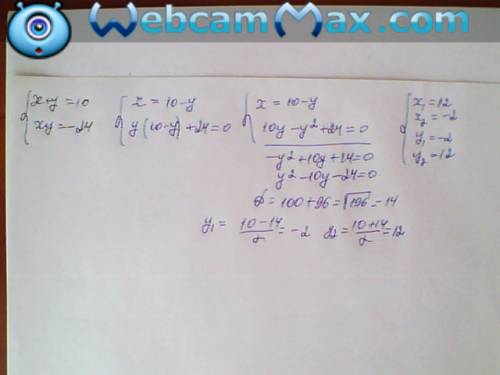 WebcamMax.com
{ x+y = 10
xy = -24
{ x = 10-y
y(10-y)+24=0
{ x = 10-y
10y-y²+24=0
-y²+10y+24=0
y²-10y-24=0
D = 100+96=√196=14
y₁ = (10-14)/2 = -2 y₂ = (10+14)/2 = 12
{ x₁=12
x₂=-2
y₁=-2
y₂=12